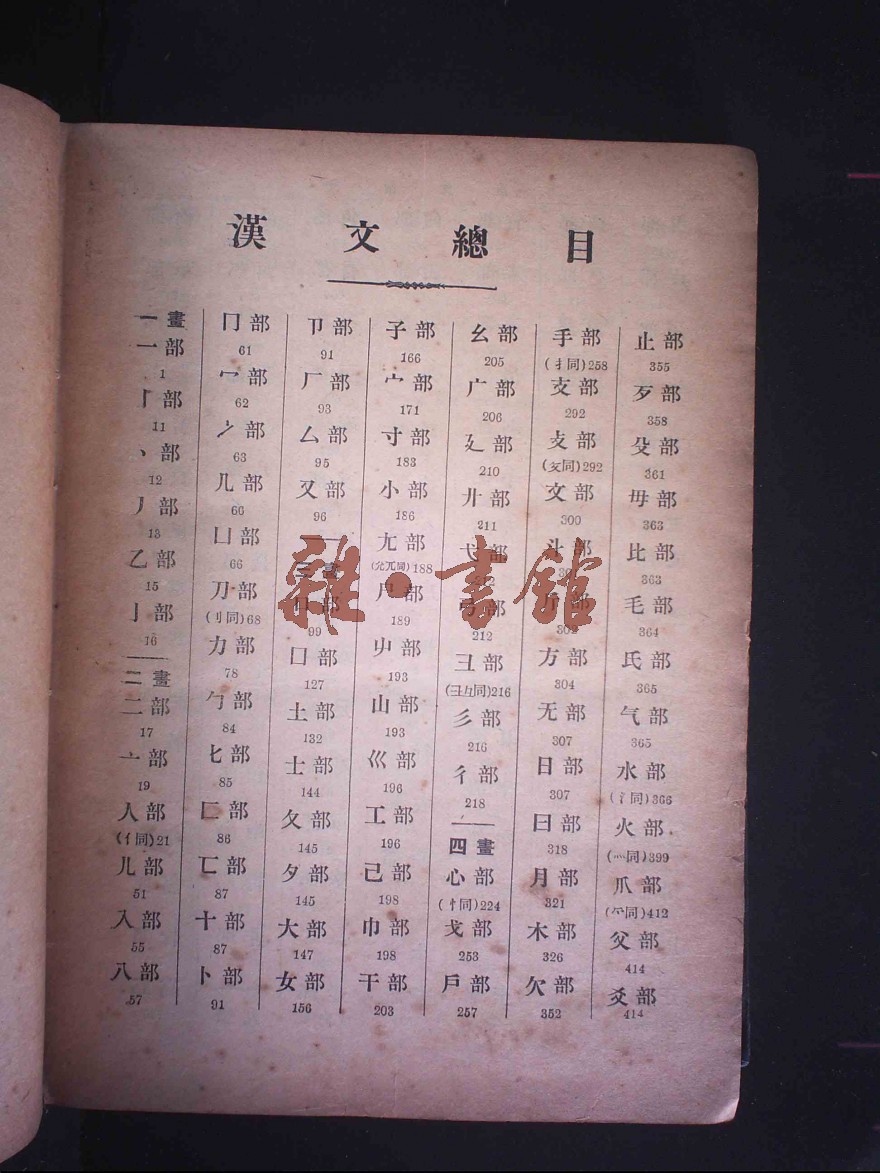 漢文總目
一畫
一部
1
丨部
11
丶部
12
丿部
13
乙部
15
亅部
16
二畫
二部
17
亠部
19
人部
(亻同)21
儿部
51
入部
55
八部
57
冂部
61
冖部
62
冫部
63
几部
66
凵部
66
刀部
(刂同)68
力部
78
勹部
84
匕部
85
匚部
86
匸部
87
十部
87
卜部
91
卩部
91
厂部
93
厶部
95
又部
96
三畫
口部
99
囗部
127
土部
132
士部
144
夂部
145
夕部
145
大部
147
女部
156
子部
166
宀部
171
寸部
183
小部
186
尢部
(尣兀同)188
尸部
189
屮部
193
山部
193
巛部
196
工部
196
己部
198
巾部
198
干部
203
幺部
205
广部
206
廴部
210
廾部
211
弋部
212
弓部
212
彐部
(彑同)216
彡部
216
彳部
218
四畫
心部
(忄同)224
戈部
253
戶部
257
手部
(扌同)258
支部
292
攴部
(攵同)292
文部
300
斗部
斤部
302
方部
304
无部
307
日部
307
曰部
318
月部
321
木部
326
欠部
352
止部
355
歹部
358
殳部
361
毋部
363
比部
363
毛部
364
氏部
365
气部
365
水部
(氵同)366
火部
(灬同)399
爪部
(爫同)412
父部
414
爻部
414
雜·書館